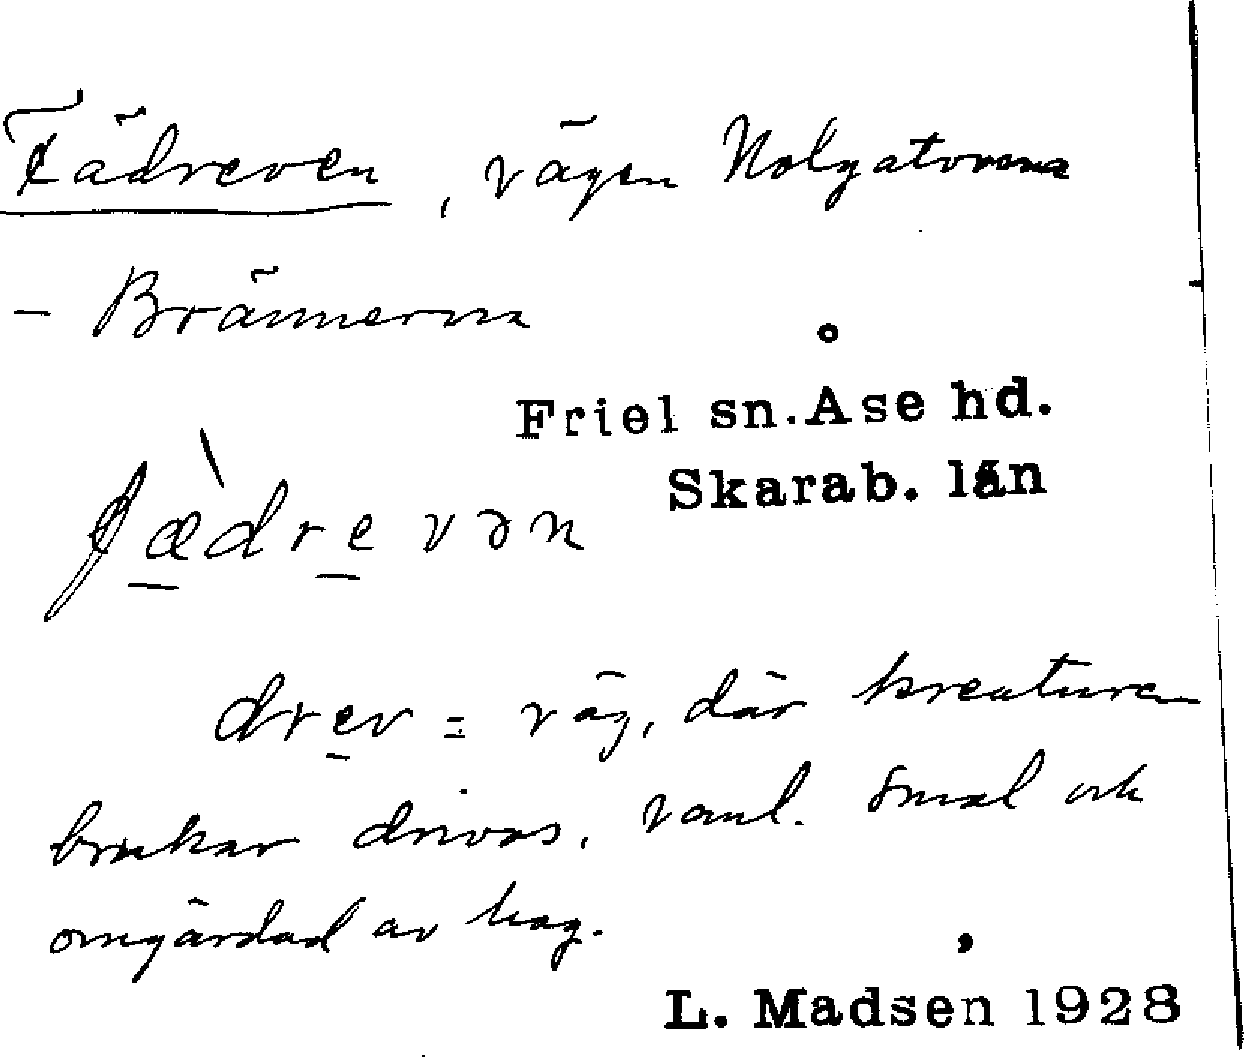 Fädreven, vägen Nolgatorna
- Brännerna
Friel sn. Åse hd.
Skarab. län
fæ̱̀dre̱vən
dre̱v = väg, där kreaturen
brukar drivas, vanl. smal och
omgärdad av hag.
L. Madsen 1928